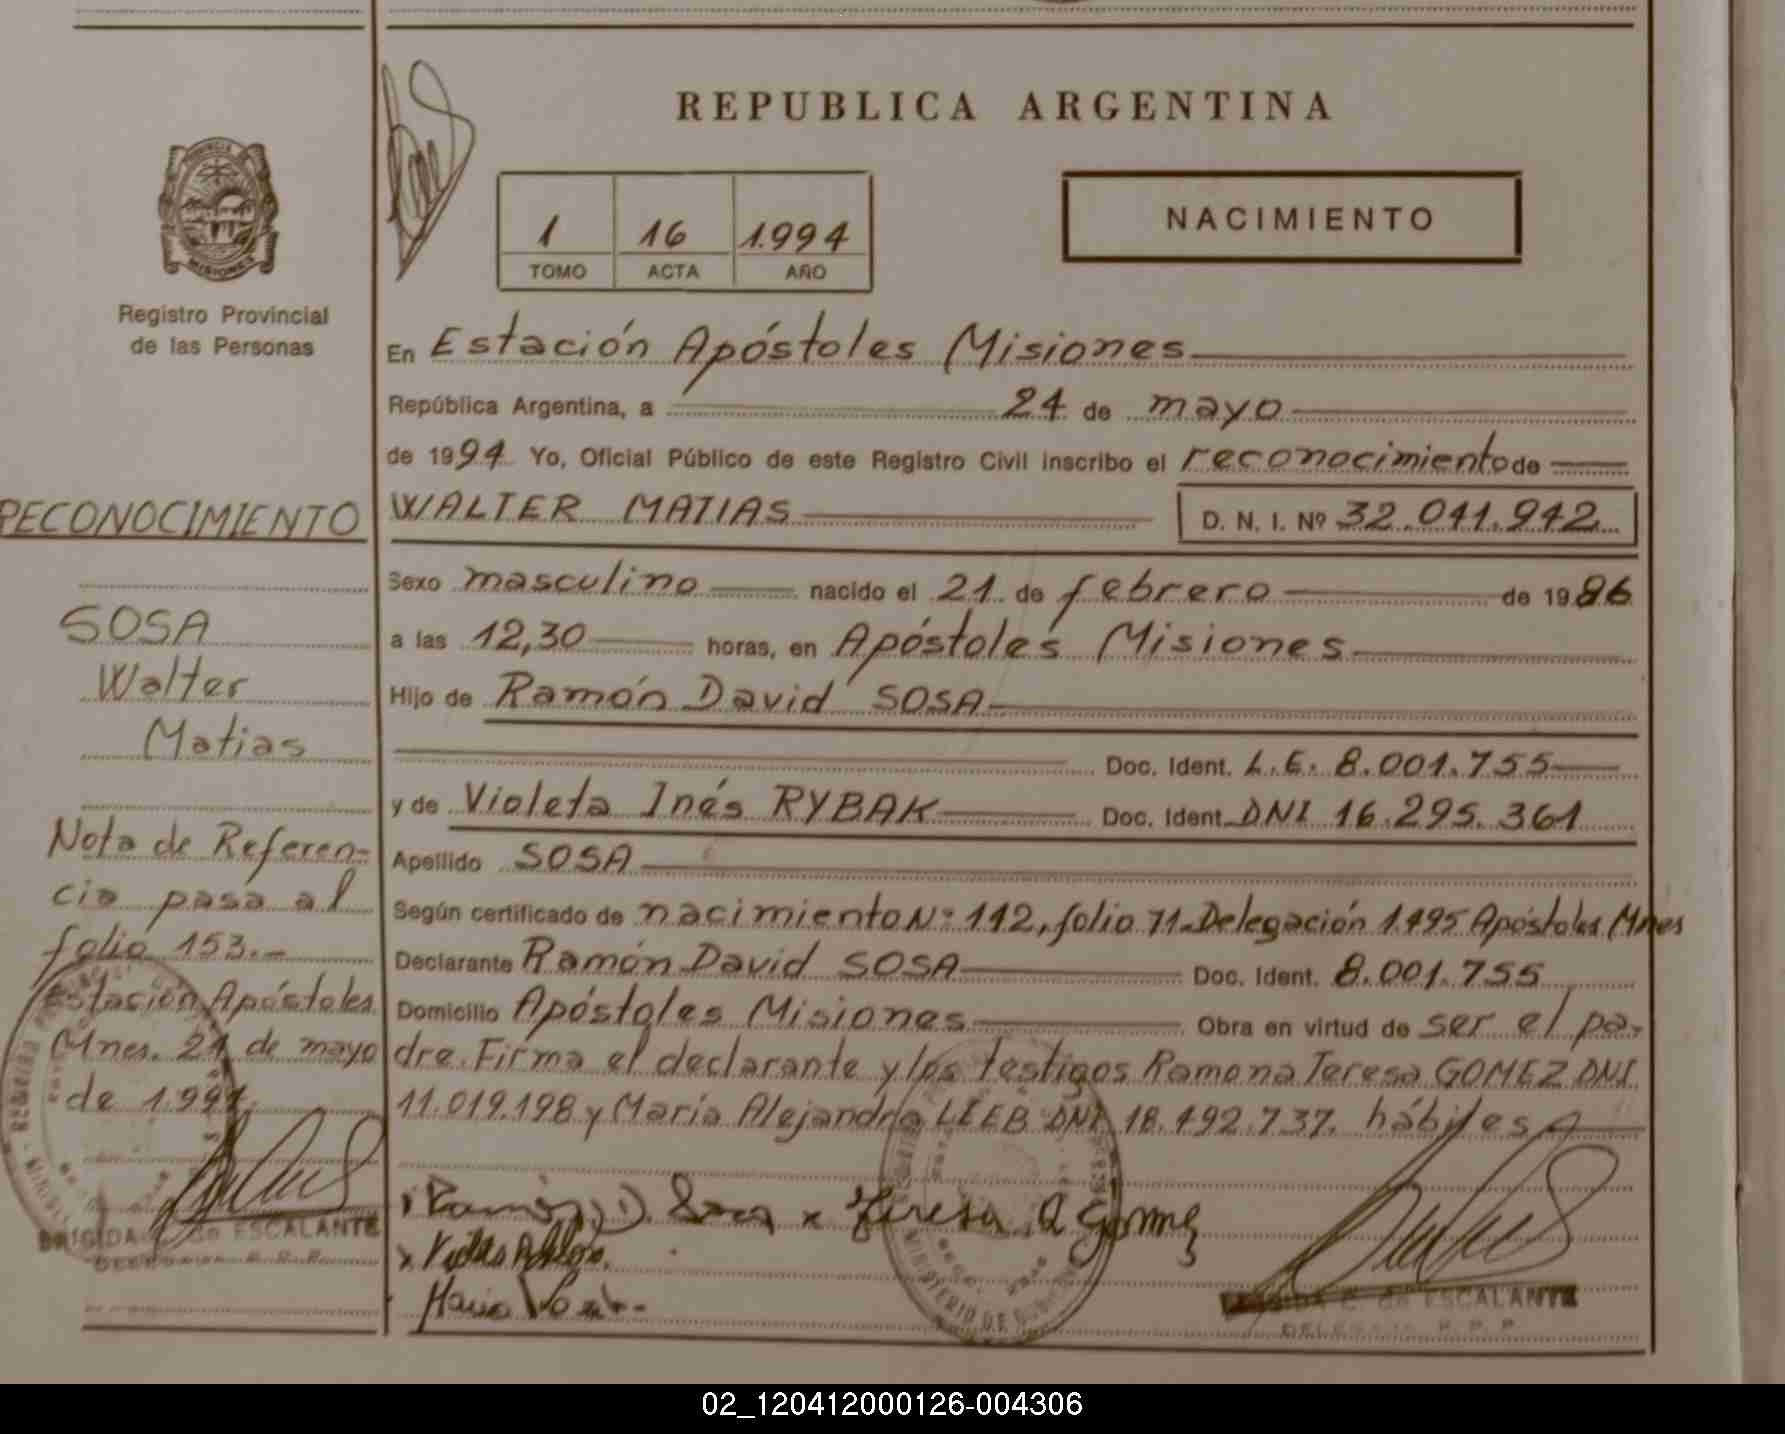 REPUBLICA ARGENTINA
PROVINCIA
MISIONES
Registro Provincial
de las Personas
1 16 1.994
TOMO ACTA AÑO
NACIMIENTO
En Estación Apóstoles Misiones
República Argentina, a 24 de mayo
de 1994 Yo, Oficial Público de este Registro Civil inscribo el reconocimiento de
WALTER MATIAS D. N. I. Nº 32.041.942
Sexo masculino nacido el 21 de febrero de 1986
a las 12,30 horas, en Apóstoles Misiones
Hijo de Ramón David SOSA
Doc. Ident. L.E. 8.001.755
y de Violeta Inés RYBAK Doc. Ident. DNI 16.295.361
Apellido SOSA
Según certificado de nacimiento Nº 112, folio 71. Delegación 1.495 Apóstoles Mnes
Declarante Ramón David SOSA Doc. Ident. 8.001.755
Domicilio Apóstoles Misiones Obra en virtud de ser el pa-
dre. Firma el declarante y los testigos Ramona Teresa GOMEZ DNI
11.019.198 y María Alejandra LEEB DNI 18.492.737. hábiles
Ramón D. Sosa x Teresa R Gomez
BRIGIDA C. de ESCALANTE
DELEGADA R.P.P.
RECONOCIMIENTO
SOSA
Walter
Matias
Nota de Referen-
cia pasa al
folio 153.-
Estación Apóstoles
Mnes. 24 de mayo
de 1.994.
BRIGIDA C. de ESCALANTE
DELEGADA R.P.P.
02_120412000126-004306